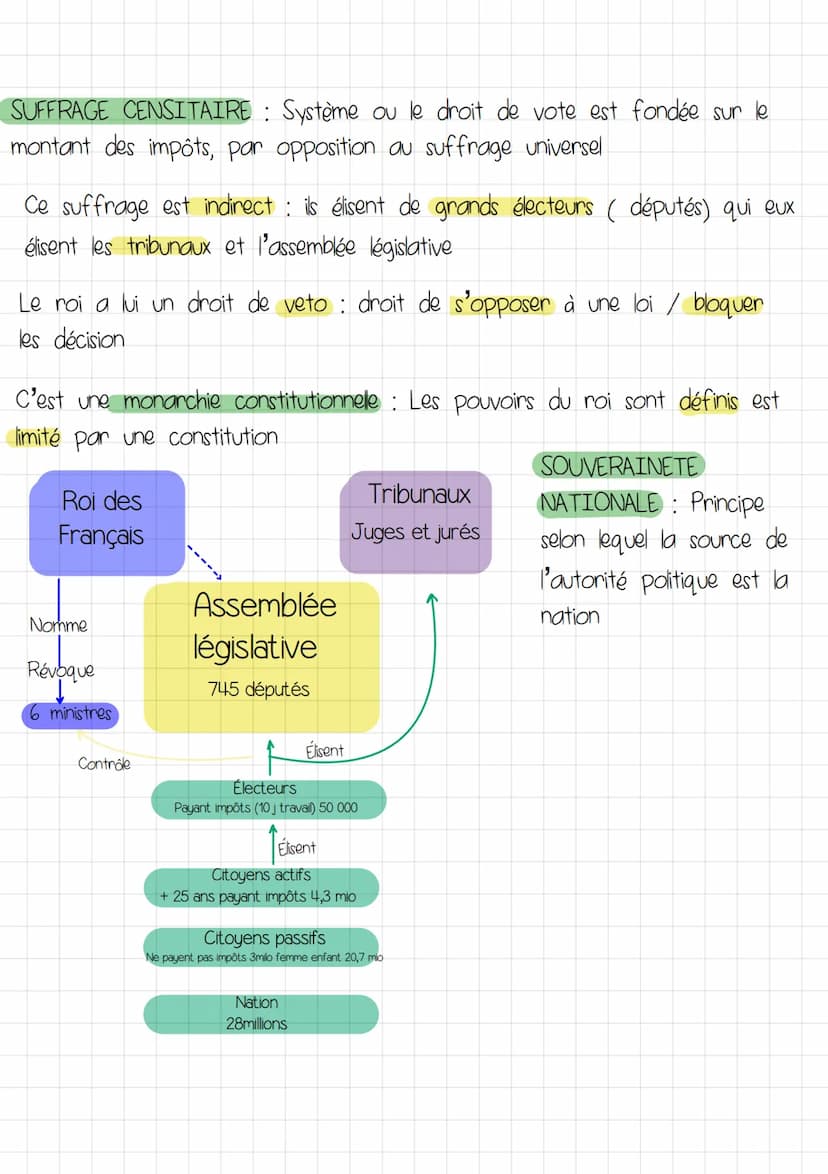 SUFFRAGE CENSITAIRE : Système ou le droit de vote est fondée sur le
montant des impôts, par opposition au suffrage universel
Ce suffrage est indirect : ils élisent de grands électeurs ( députés) qui eux
élisent les tribunaux et l'assemblée législative
Le roi a lui un droit de veto : droit de s'opposer à une loi / bloquer
les décision
C'est une monarchie constitutionnelle : Les pouvoirs du roi sont définis est
limité par une constitution
SOUVERAINETE
NATIONALE : Principe
selon lequel la source de
l'autorité politique est la
nation
Roi des
Français
Tribunaux
Juges et jurés
Assemblée
législative
745 députés
Nomme
Révoque
6 ministres
Contrôle
Élisent
Électeurs
Payant impôts (10 j travail) 50 000
Élisent
Citoyens actifs
+ 25 ans payant impôts 4,3 mio
Citoyens passifs
Ne payent pas impôts 3milo femme enfant 20,7 mio
Nation
28millions